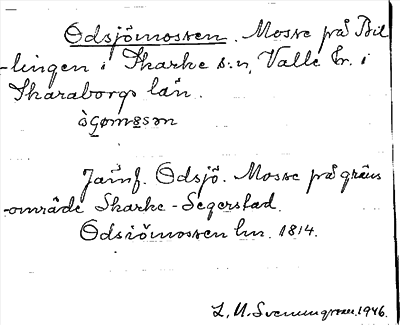 Odsjömossen. Mosse på Bil
-lingen i Skarke s:n, Valle hr. i
Skaraborgs län.
Jämf. Odsjö. Mosse på gräns
-område Skarke-Segerstad.
Odsiömossen lm. 1814.
1946.